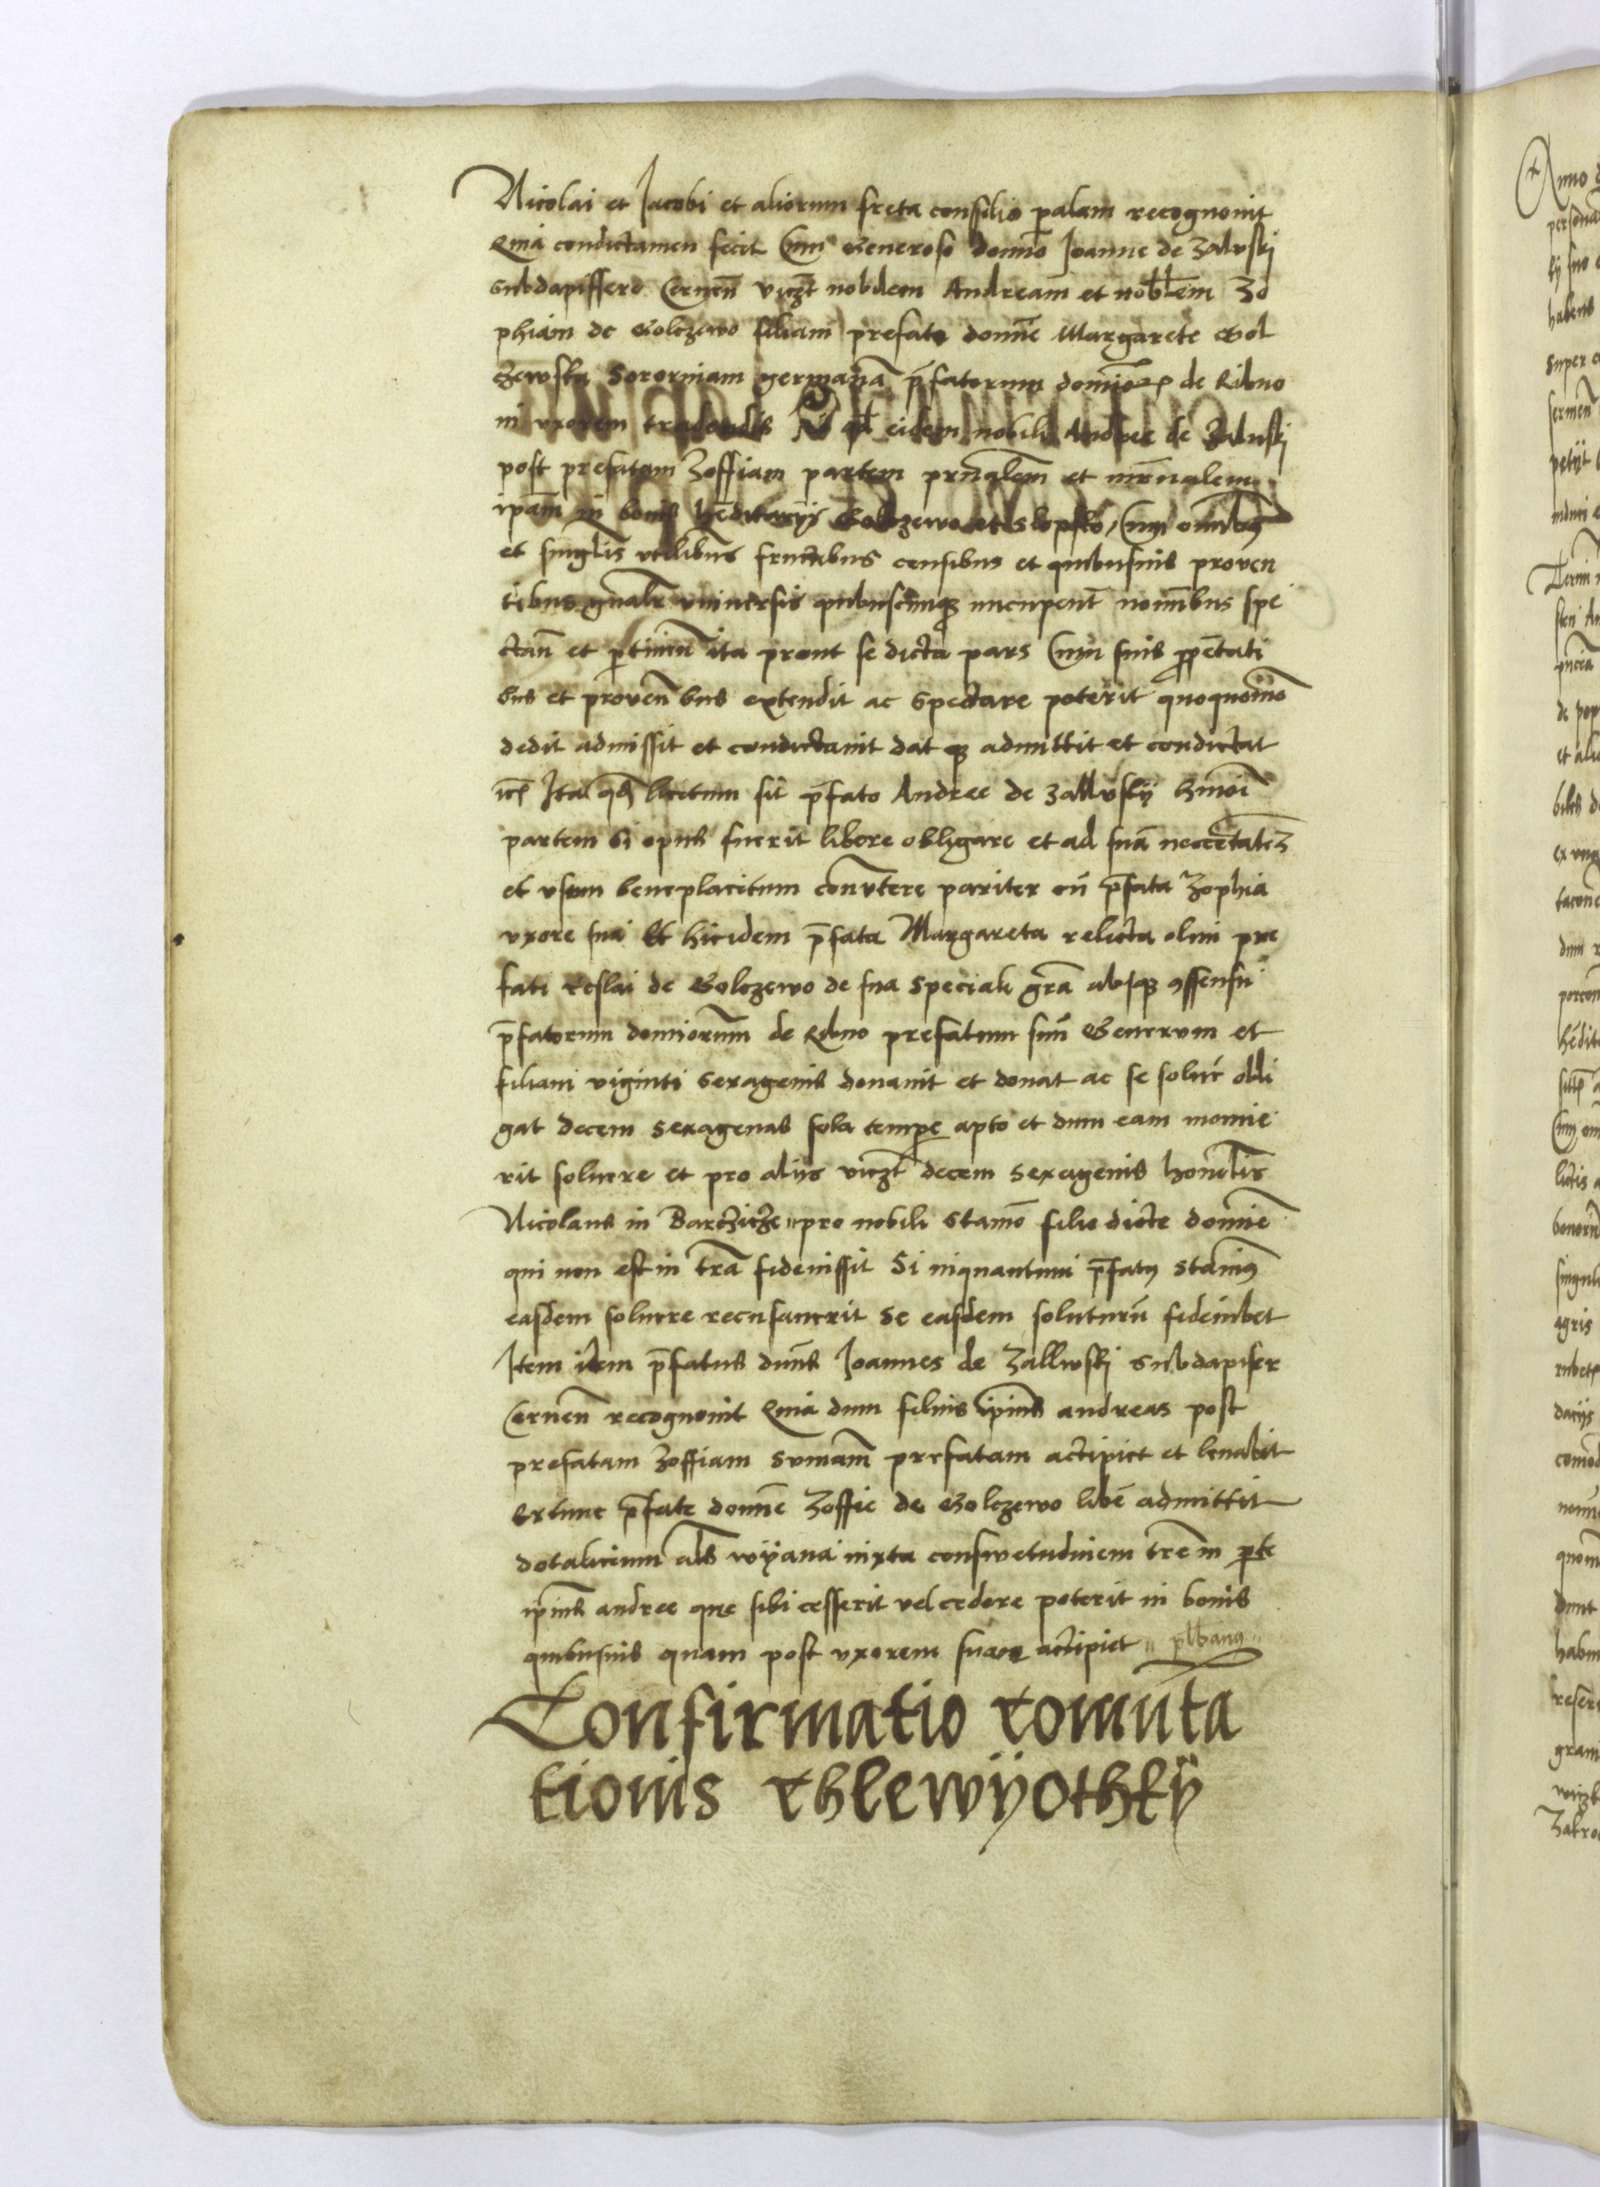 Nicolai et Jacobi et aliorum freta consilio palam recognovit
Quia condictamen fecit Cum Generoso domino Joanne de Zaluski
Subdapiffero Cernen̄ viczt nobilem Andream et nobilem Zo
phiam de Golczewo filiam prefate domine Margarete Gol
czewska Sororinam germanā p̄fatorum dominoꝝ de Ribno
in vxorem tradendis eidem nobili Andree de Zaluski
post prefatam Zoffiam partem prnalem et mrnalem
ipam in bonis hēditarÿs Golczewo et Slopsko Cum omībus
et singlis vtilibus fructibus censibus et quibusuis proven
tibus gnalr vniuersis quibuscumqꝫ nuncupent nominibus spe
ctan̄ et ptinen̄ ita prout se dicta pars Cum suis ꝓpetati
bus et proven̄bus extendit ac Spectare poterit quoquomō
dedit admissit et condictavit dat qꝫ admittit et condictat
Ita qd licitum sit p̄fato Andree de Zallvskÿ hmoi
partem Si opus fuerit libere obligare et ad suā neccetatez
et vsum beneplacitum conv̄tere pariter cū p̄fata Zophia
vxore sua Et hicidem p̄fata Margareta relicta olim pre
fati de Golczewo de sua Speciali grā absqꝫ ꝯssensu
p̄fatorum domiorum de Ribno prefatum suū Generum et
filiam viginti Sexagenis donauit et donat ac se soluē obli
gat decem Sexagenas sola tempe apto et dum eam monue
rit soluere et pro alijs viczt decem Sexagenis honolis
Nicolaus in Barczicze pro nobili Stanō filio dicte domīe
qui non est in trā fideiussit Si inquantum p̄fatꝰ Stanisꝰ
easdem soluere recusauerit Se easdem soluturū fideiubet
Item idem p̄fatus dūns Joannes de Zallwski Subdapifer
Cernen̄ recognouit Quia dum filius ipius andreas post
prefatam Zoffiam Summam prefatam accipiet et leuabit
Extunc p̄fate domīe Zoffie de Golczewo libē admittit
dotalicium als wÿano iuxta consuetudinem trē in pte
ipius andree que sibi cesserit vel cedere poterit in bonis
quibusuis quam post vxorem suam accipiet
Confirmatio comuta
tionis Chlewÿothkÿ